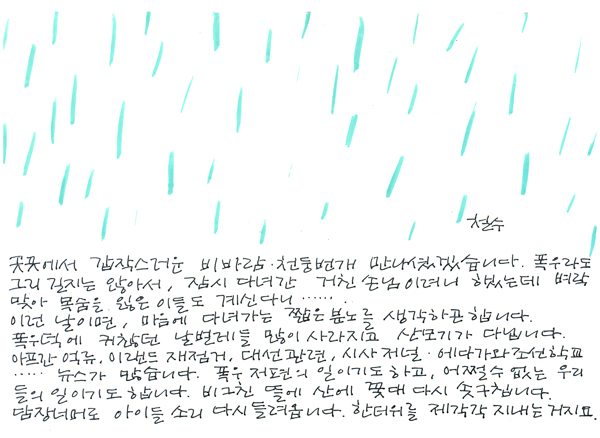 철수
곳곳에서 갑작스러운 비바람·천둥번개 만나셨겠습니다. 폭우라도
그리 길지는 않아서, 잠시 다녀간 거친 손님이려니 했는데 벼락
맞아 목숨을 잃은 이들도 계신다니……
이런 날이면, 마음에 다녀가는 짧은 분노를 생각하곤 합니다.
폭우덕에 귀찮던 날벌레들 많이 사라지고 산모기가 다닙니다.
아프간 억류, 이랜드 재점거, 대선관련, 시사저널·에다가와조선학교
…… 뉴스가 많습니다. 폭우 저편의 일이기도하고, 어쩔수 없는 우리
들의 일이기도 합니다. 비그친 뜰에 산에 꽃대 다시 솟구칩니다.
담장너머로 아이들 소리 다시 들려옵니다. 한더위를 제각각 지내는거지요.